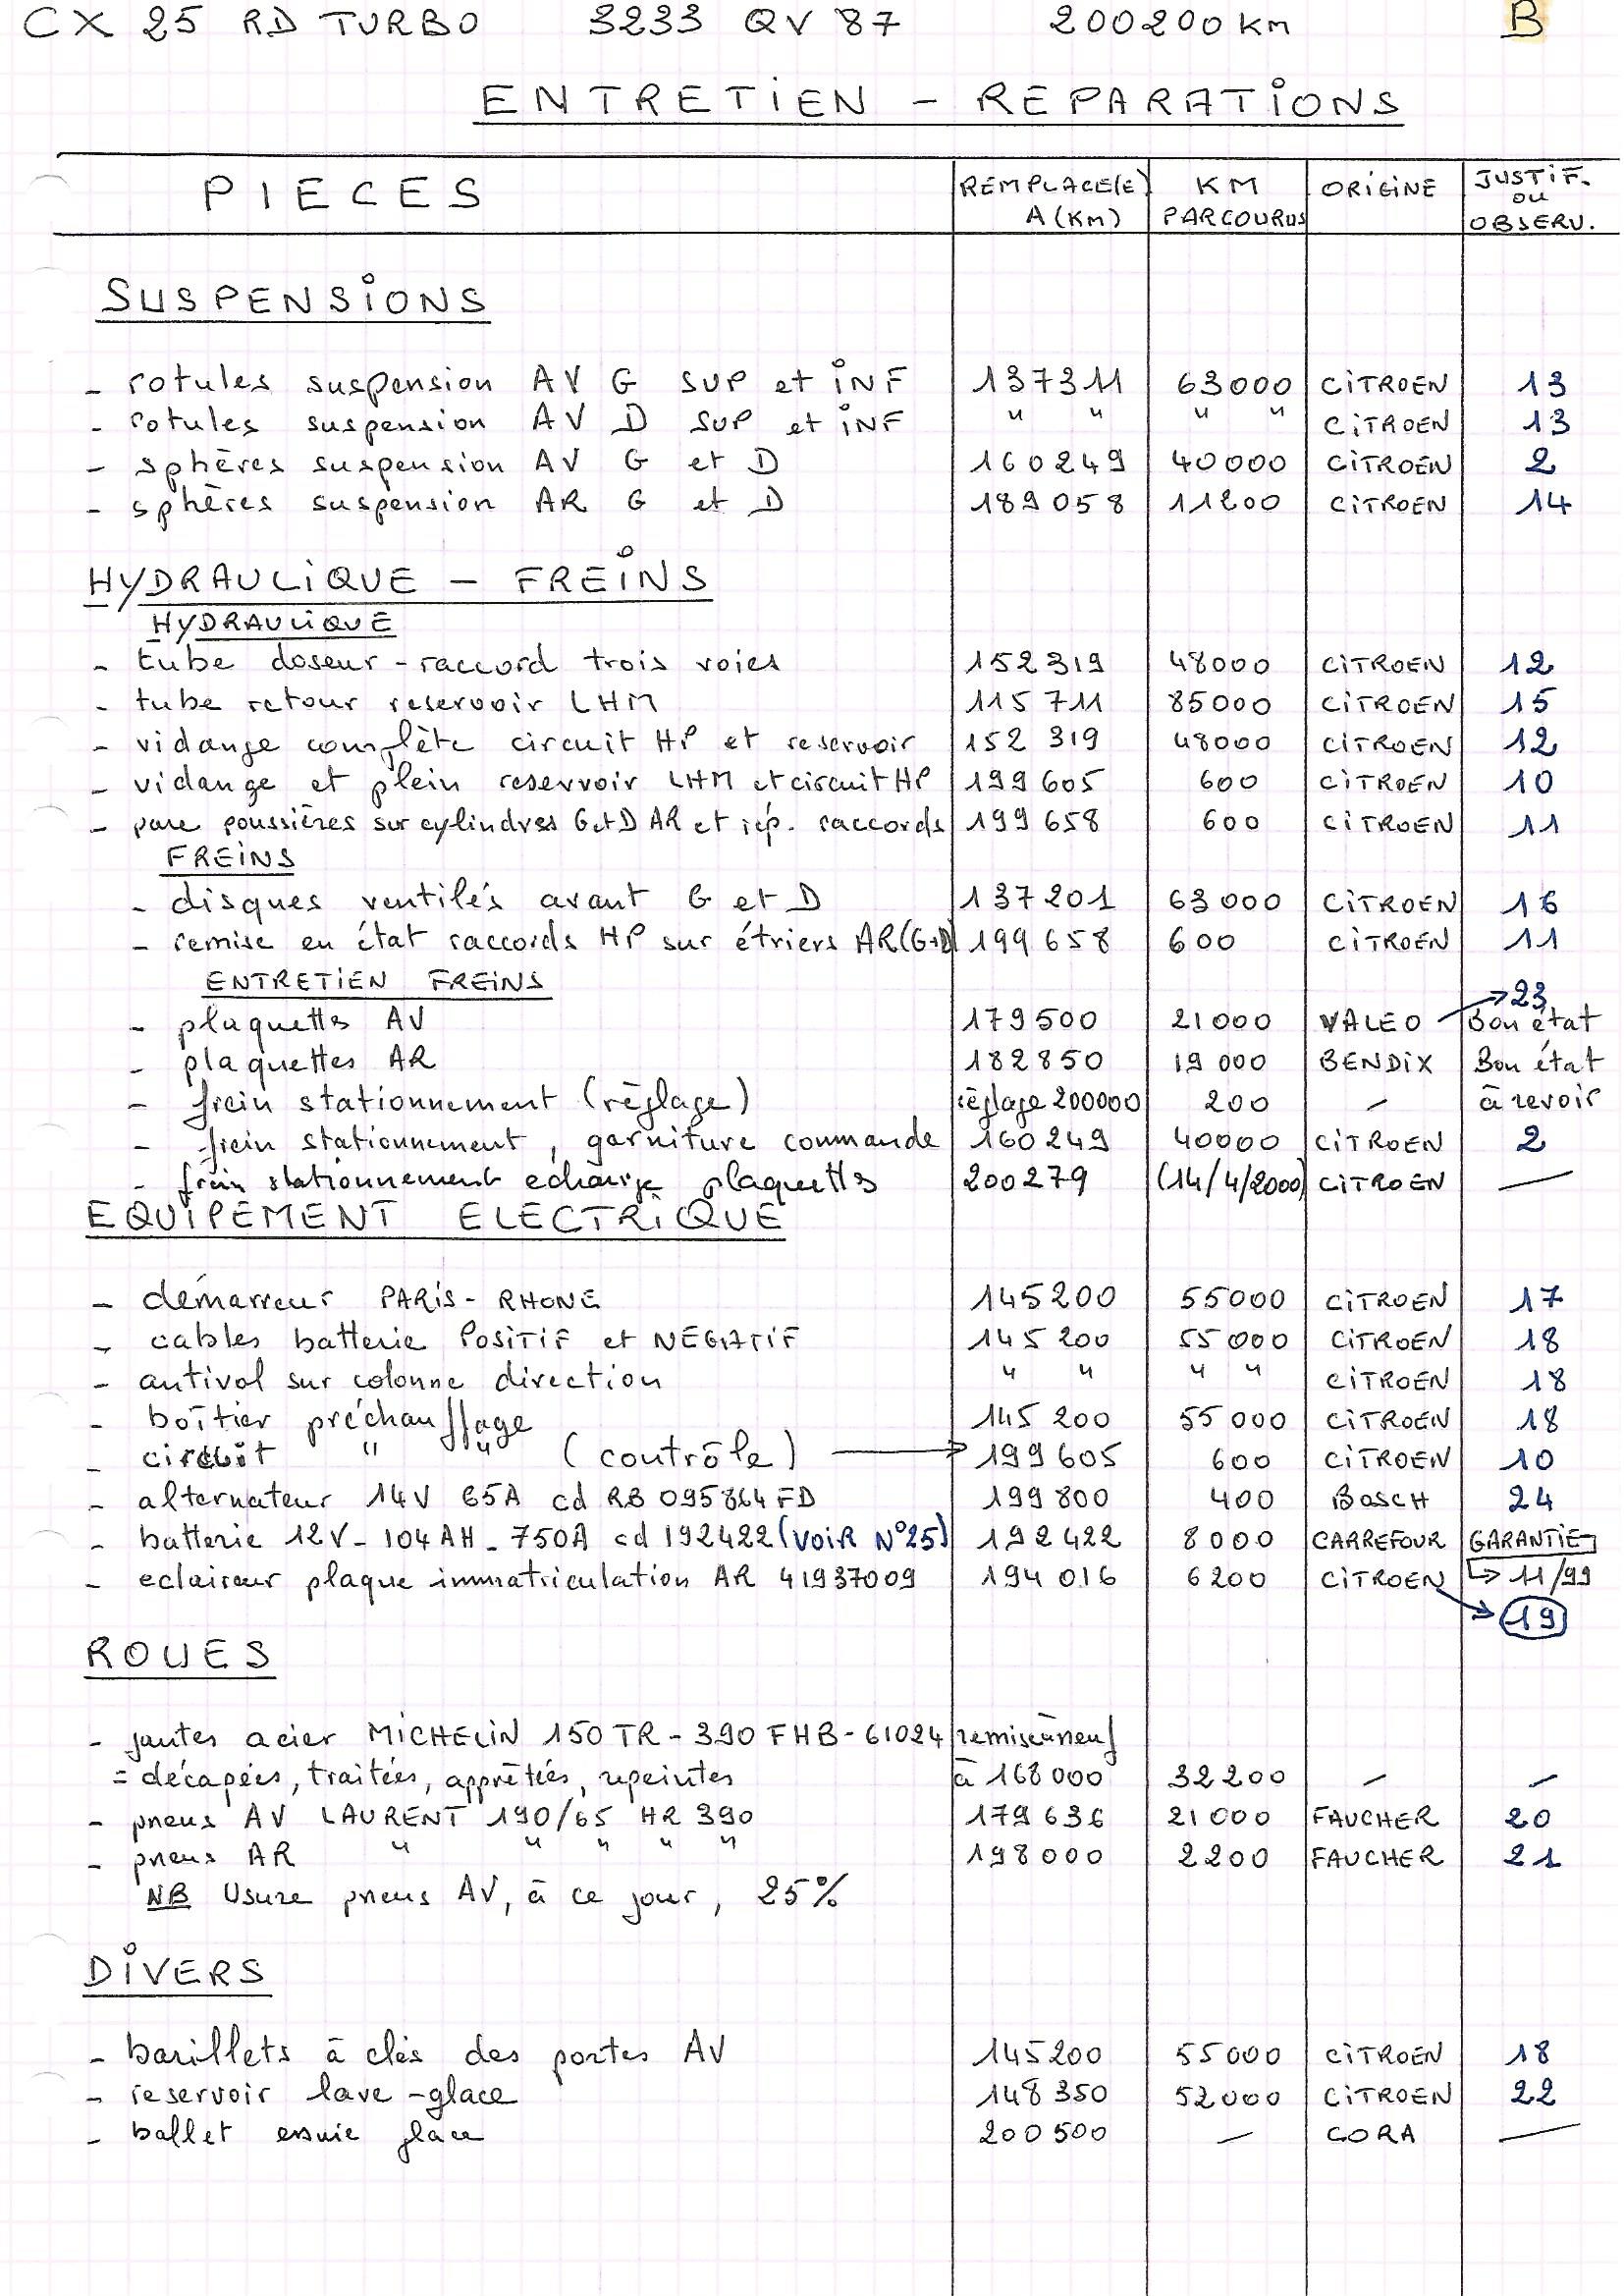 CX 25 RD TURBO 3233 QV 87 200200 Km B
ENTRETIEN - REPARATIONS
PIECES REMPLACE(E) A (Km) KM PARCOURUS ORIGINE JUSTIF. ou OBSERV.
SUSPENSIONS
- rotules suspension AV G SUP et INF 137311 63000 CITROEN 13
- rotules suspension AV D SUP et INF " " " " CITROEN 13
- sphères suspension AV G et D 160249 40000 CITROEN 2
- sphères suspension AR G et D 189058 11200 CITROEN 14
HYDRAULIQUE - FREINS
HYDRAULIQUE
- tube doseur - raccord trois voies 152319 48000 CITROEN 12
- tube retour reservoir LHM 115711 85000 CITROEN 15
- vidange complète circuit HP et reservoir 152 319 48000 CITROEN 12
- vidange et plein reservoir LHM et circuit HP 199605 600 CITROEN 10
- pare poussières sur cylindres G et D AR et rép. raccords 199658 600 CITROEN 11
FREINS
- disques ventilés avant G et D 137201 63000 CITROEN 16
- remise en état raccords HP sur étriers AR (G+D) 199658 600 CITROEN 11
ENTRETIEN FREINS
- plaquettes AV 179500 21000 VALEO → 23 Bon état
- plaquettes AR 182850 19000 BENDIX Bon état
- frein stationnement (réglage) réglage 200000 200 - à revoir
- frein stationnement, garniture commande 160249 40000 CITROEN 2
- frein stationnement echange plaquettes 200279 (14/4/2000) CITROEN —
EQUIPEMENT ELECTRIQUE
- démarreur PARIS-RHONE 145200 55000 CITROEN 17
- cables batterie POSITIF et NEGATIF 145200 55000 CITROEN 18
- antivol sur colonne direction " " " " CITROEN 18
- boîtier préchauffage 145200 55000 CITROEN 18
- circuit " " (contrôle) → 199605 600 CITROEN 10
- alternateur 14V 65A cd RB 095864 FD 199800 400 BOSCH 24
- batterie 12V - 104AH - 750A cd 192422 (VOIR N°25) 192422 8000 CARREFOUR GARANTIE
- eclaireur plaque immatriculation AR 41937009 194016 6200 CITROEN ↳ 11/99
→ 19
ROUES
- jantes acier MICHELIN 150 TR - 390 FHB - 61024 remise à neuf
= décapées, traitées, apprêtées, repeintes à 168000 32200 - -
- pneus AV LAURENT 190/65 HR 390 179636 21000 FAUCHER 20
- pneus AR " " " " " 198000 2200 FAUCHER 21
NB Usure pneus AV, à ce jour, 25%
DIVERS
- barillets à clés des portes AV 145200 55000 CITROEN 18
- reservoir lave-glace 148350 52000 CITROEN 22
- ballet essuie glace 200500 — CORA —